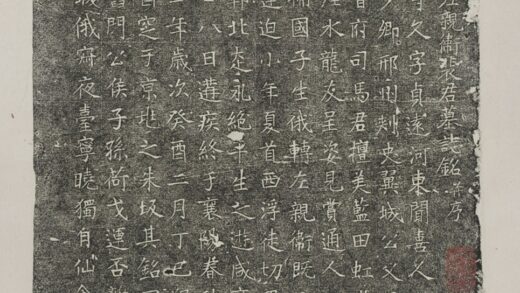 左親衛裴君墓誌銘并序
久字貞遠河東聞喜人
卿邢州刾史翼城公父
督府司馬君擅美藍田虹
水龍友呈姿見賞通人
補國子生俄轉左親衛既
迫小年夏首西浮徒切
郢北走永絶平生之遊咸
八日遘疾終于襄陽春
年歲次癸酉二月丁巳
窆于京地之朱坂其銘
門公侯子孫荷戈運否
城俄齊夜臺寧曉獨自仙